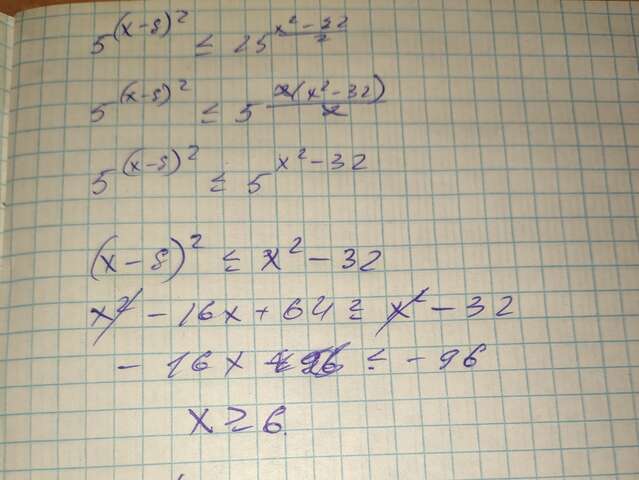 5^{(x-8)^2} ≤ 25^{\frac{x^2-32}{2}}
5^{(x-8)^2} ≤ 5^{\frac{2(x^2-32)}{2}}
5^{(x-8)^2} ≤ 5^{x^2-32}
(x-8)^2 ≤ x^2-32
x^2-16x+64 ≤ x^2-32
-16x ≤ -96
x ≥ 6.